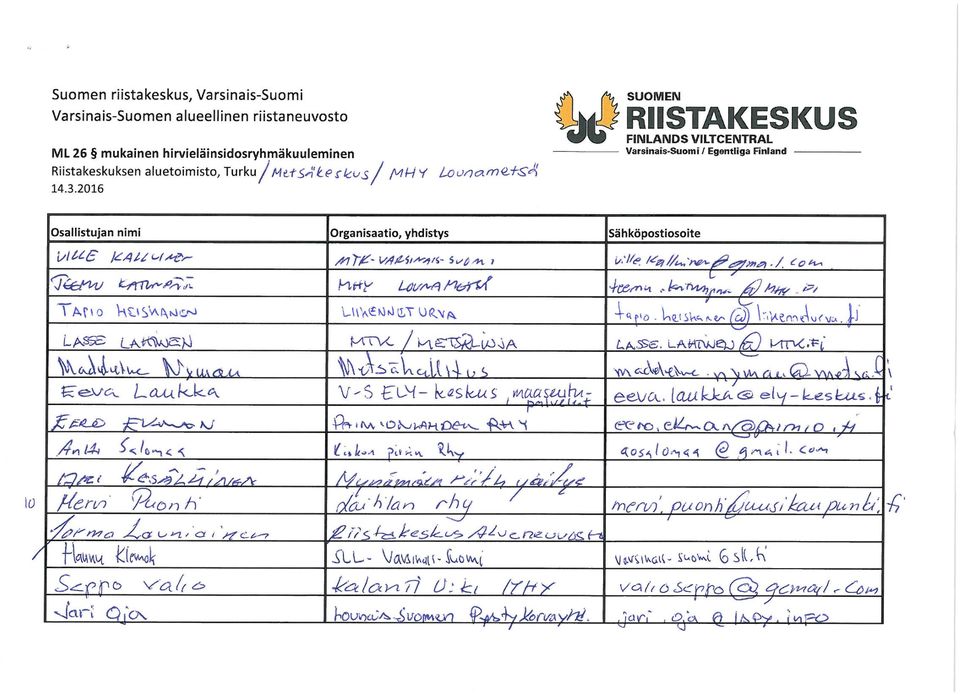 Suomen riistakeskus, Varsinais-Suomi
Varsinais-Suomen alueellinen riistaneuvosto
SUOMEN
RIISTAKESKUS
FINLANDS VILTCENTRAL
Varsinais-Suomi / Egentliga Finland
ML 26 § mukainen hirvieläinsidosryhmäkuuleminen
Riistakeskuksen aluetoimisto, Turku / Metsäkeskus / MHY Lounametsä
14.3.2016
Osallistujan nimi Organisaatio, yhdistys Sähköpostiosoite
VILLE KALLINEN MTK-VARSINAIS-SUOMI
TEEMU MHY LOUNAMETSÄ
TAPIO HEISKANEN LIIKENNETURVA tapio.heiskanen@liikenneturva.fi
LASSE LAHTINEN MTK / METSÄLINJA LASSE.LAHTINEN@MTK.FI
Madeleine Nyman Metsähallitus madeleine.nyman@metsa.fi
Eeva Laukka V-S ELY-keskus, maaseutu-palvelut eeva.laukka@ely-keskus.fi
EERO RHY
Antti Salomaa Kiskon piirin Rhy aosalomaa@gmail.com
KESÄLÄINEN Mynämäen riith yhditys
10 Mervi Puonti Laitilan rhy mervi.puonti@uusikaupunki.fi
Jorma Launiainen Riistakeskus Alueneuvosto
Hannu Klemola SLL - Varsinais-Suomi varsinais-suomi@sll.fi
Seppo Valio Kalanti U:ki MHY
Jari Oja Lounais-Suomen jari.oja@